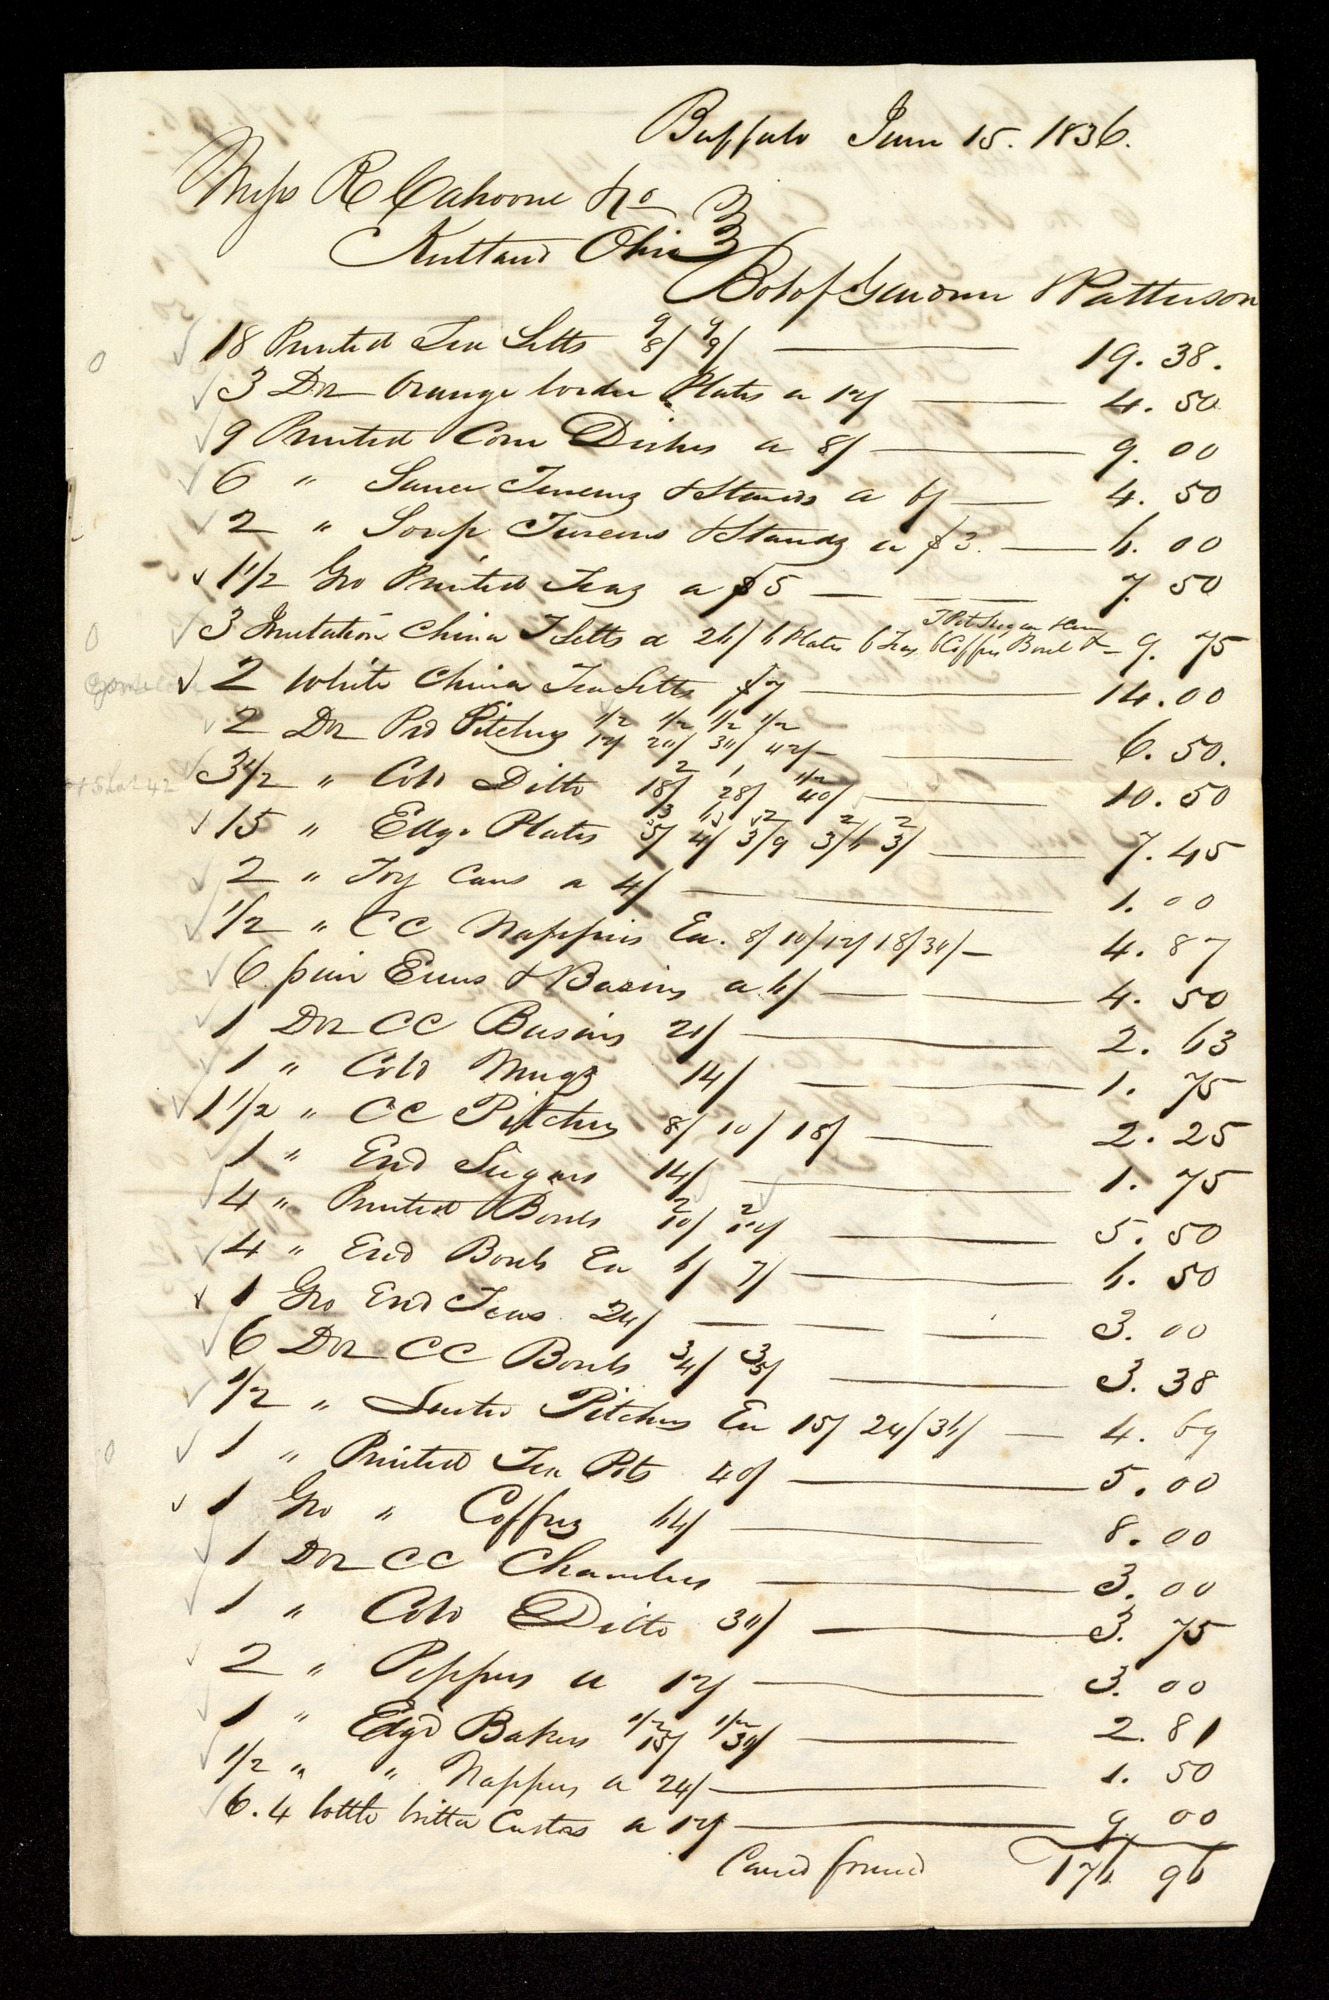 Buffalo June 15. 1836.
Mess R Cahoone & Co
Kirtland Ohio
Bot of Gardner & Patterson
18 Printed Tea Setts 9/8/ 9/9/ 19.38.
3 Doz Orange border Plates a 12/ 4.50
9 Printed Corn Dishes a 8/ 9.00
6 " Sauce Tureens & Stands a 6/ 4.50
2 " Soup Tureens & Stands a $3. 6.00
1 1/2 Gro Printed Teas a $5 7.50
3 Imitation China T Setts a 26/ 6 Plates 6 Teas 6 Coffees Bowl & T Pot Sugar 9.75
2 White China Tea Setts $7 14.00
2 Doz Prd Pitchers 1/2 12/ 1/2 20/ 1/2 30/ 1/2 42/ 6.50.
3 1/2 " Cold Ditto 2 18/ 1 28/ 1/2 40/ 10.50
15 " Edge Plates 5/ 4/ 3/9 3/6 3/ 7.45
2 " Toy Cans a 4/ 1.00
1/2 " CC Nappies Ea. 8/ 10/ 12/ 18/ 30/ 4.87
6 pair Ewers & Basins a 6/ 4.50
1 Doz CC Basins 21/ 2.63
1 " Cold Mugs 14/ 1.75
1 1/2 " CC Pitchers 8/ 10/ 18/ 2.25
1 " End Sugars 14/ 1.75
4 " Printed Bowls 2 10/ 2 12/ 5.50
4 " End Bowls Ea 6/ 7/ 6.50
1 Gro End Teas 24/ 3.00
6 Doz CC Bowls 3 4/ 3 5/ 3.38
1/2 " Pitchers Ea 15/ 24/ 36/ 4.69
1 " Printed Tea Pots 40/ 5.00
1 Gro " Coffees 64/ 8.00
1 Doz CC Chambers 3.00
1 " Cold Ditto 30/ 3.75
2 " Peppers a 12/ 3.00
1 " Edgd Bakers 1/2 15/ 1/2 30/ 2.81
1/2 " " Nappies a 24/ 1.50
6. 4 bottle britta Castors a 12/ 9 00
Carrid forward 176 96